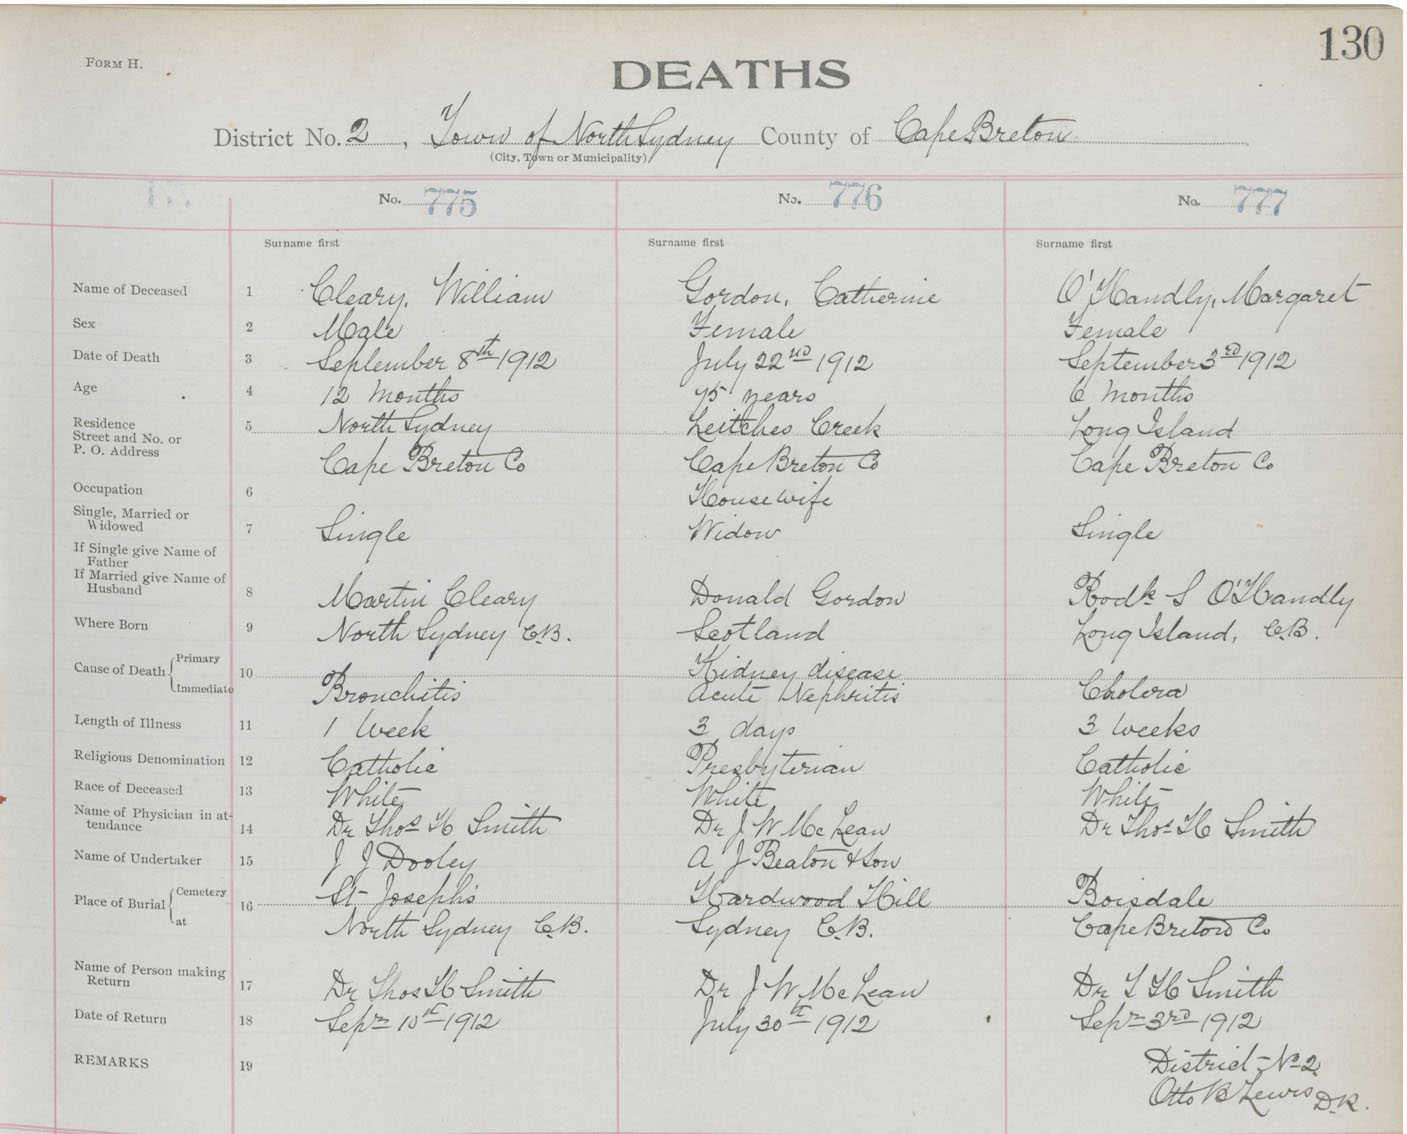 130
FORM H.
DEATHS
District No. 2, Town of North Sydney County of Cape Breton
(City, Town or Municipality)
No. 775 No. 776 No. 777
Surname first Surname first Surname first
Name of Deceased 1 Cleary, William Gordon, Catherine O'Handly, Margaret
Sex 2 Male Female Female
Date of Death 3 September 8th 1912 July 22nd 1912 September 3rd 1912
Age 4 12 Months 75 years 6 Months
Residence 5 North Sydney Leitches Creek Long Island
Street and No. or
P. O. Address Cape Breton Co Cape Breton Co Cape Breton Co
Occupation 6 Housewife
Single, Married or
Widowed 7 Single Widow Single
If Single give Name of
Father
If Married give Name of
Husband 8 Martin Cleary Donald Gordon Rodk S O'Handly
Where Born 9 North Sydney C.B. Scotland Long Island, C.B.
Cause of Death Primary 10 Kidney disease
Immediate Bronchitis Acute Nephritis Cholera
Length of Illness 11 1 Week 3 days 3 Weeks
Religious Denomination 12 Catholic Presbyterian Catholic
Race of Deceased 13 White White White
Name of Physician in at-
tendance 14 Dr Thos H Smith Dr J W McLean Dr Thos H Smith
Name of Undertaker 15 J J Dooley A J Beaton & Son
Place of Burial Cemetery 16 St Joseph's Hardwood Hill Boisdale
at North Sydney C.B. Sydney C.B. Cape Breton Co
Name of Person making
Return 17 Dr Thos H Smith Dr J W McLean Dr T H Smith
Date of Return 18 Sepr 10th 1912 July 30th 1912 Sepr 3rd 1912
REMARKS 19 District No 2
Otto B Lewis D.R.